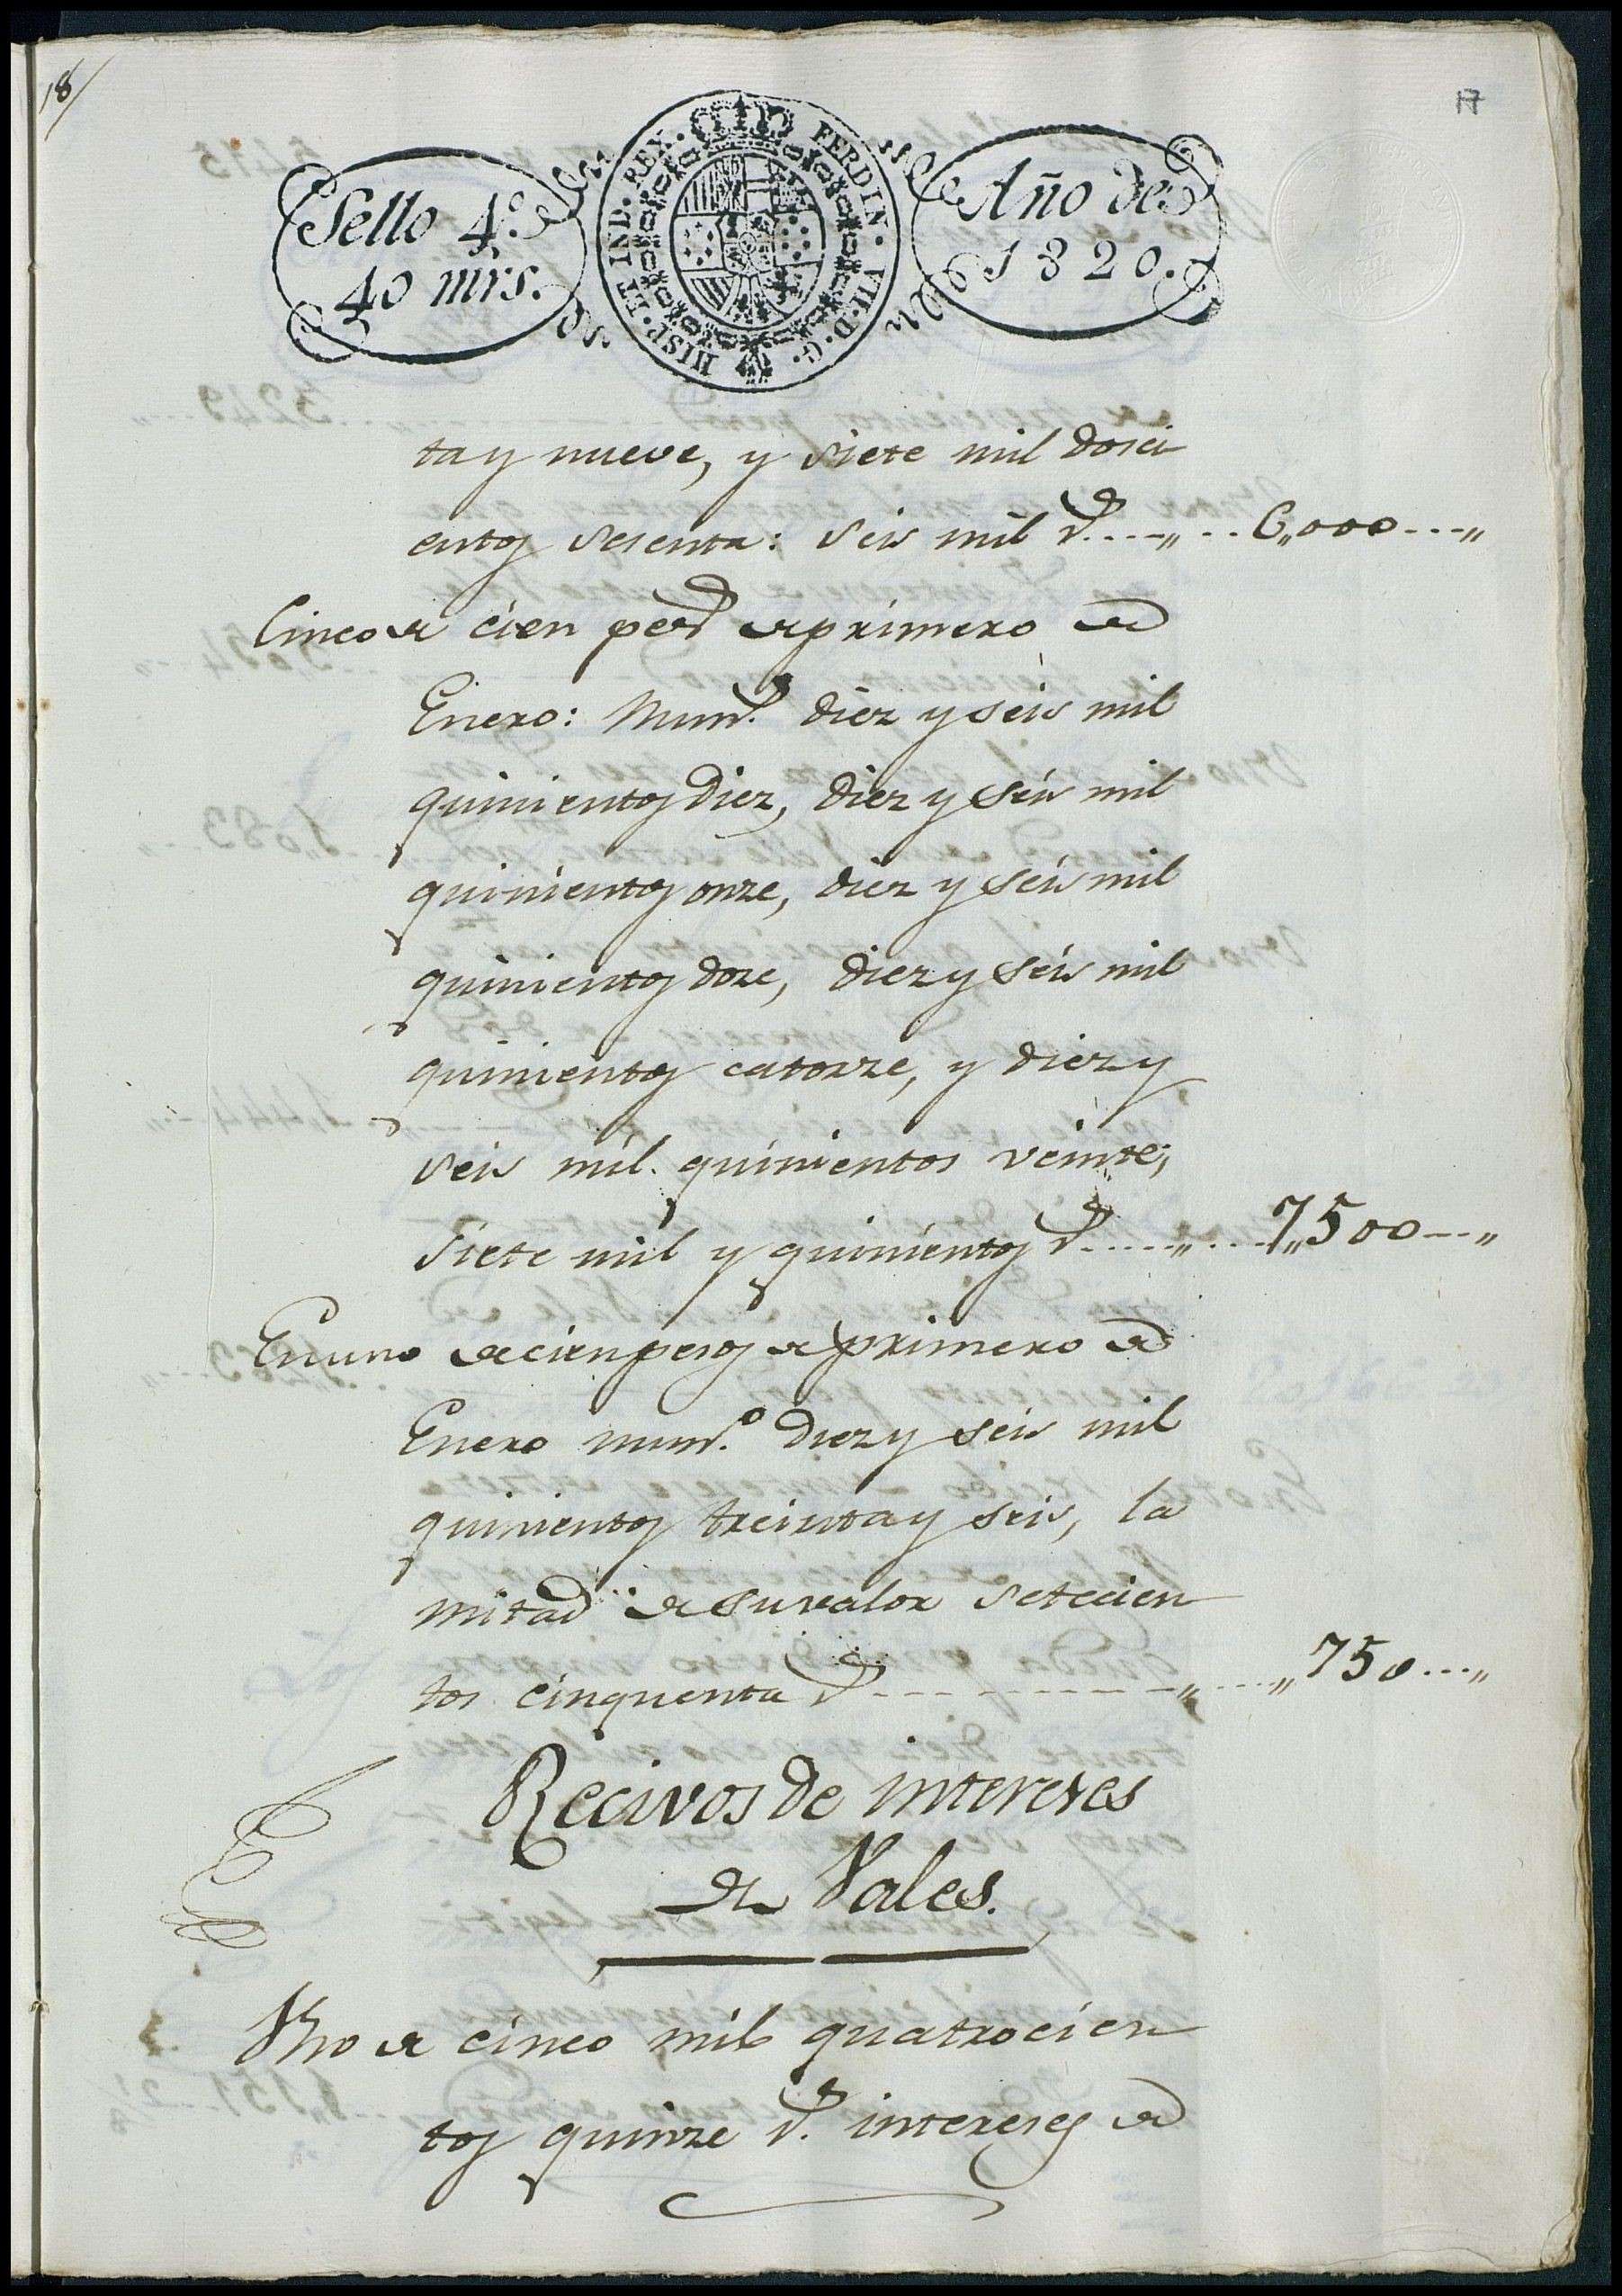 18/
17
Sello 4.º
40 mrs.
HISP. ET IND. REX. FERDIN. VII. D. G.
Año de
1820.
ta y nueve, y siete mil dosci
entos sesenta: seis mil rs....,,...6,,000...,,
Cinco de cien pesos de primero de
Enero: Nums. diez y seis mil
quinientos diez, diez y seis mil
quinientos onze, diez y seis mil
quinientos doze, diez y seis mil
quinientos catorze, y diez y
seis mil quinientos veinte;
siete mil y quinientos rs.....,,...7,,500...,,
En uno de cien pesos de primero de
Enero num.º diez y seis mil
quinientos treinta y seis, la
mitad de su valor setecien
tos cinquenta rs..........,,....,,750...,,
Recivos de intereses
de Vales.
Vno de cinco mil quatrocien
tos quinze rs. intereses de